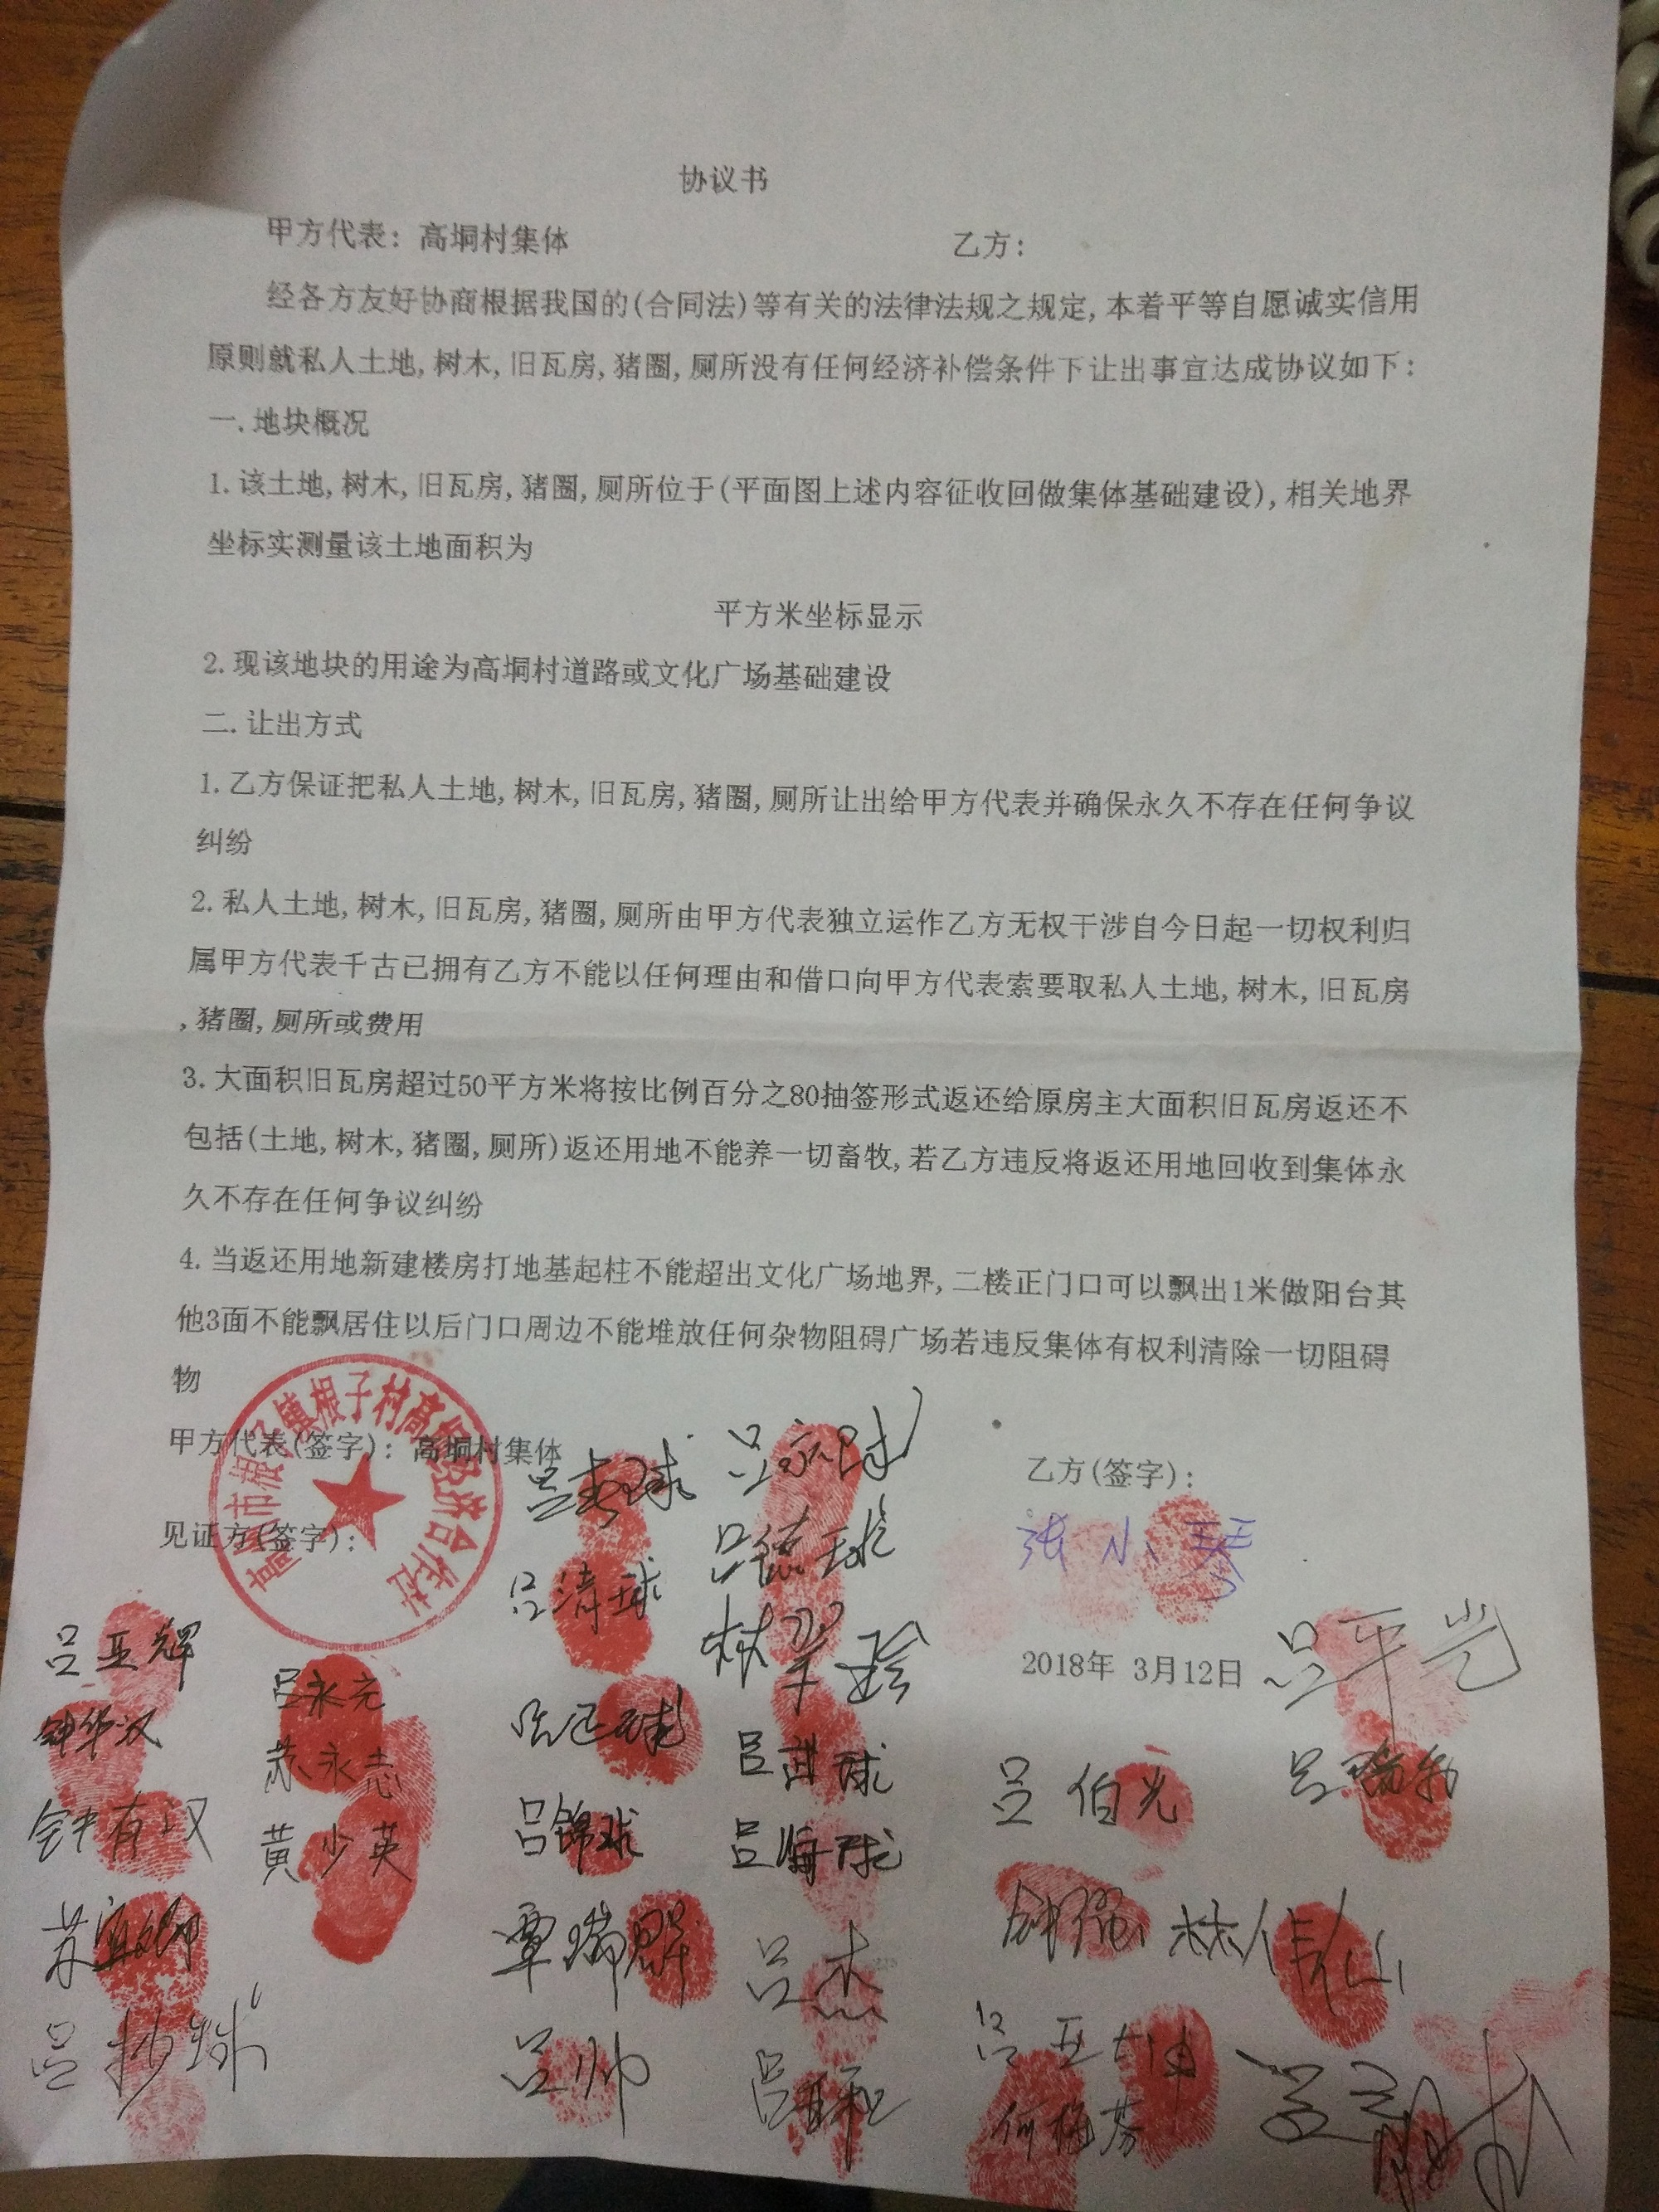 协议书
甲方代表：高垌村集体 乙方：
经各方友好协商根据我国的(合同法)等有关的法律法规之规定,本着平等自愿诚实信用
原则就私人土地,树木,旧瓦房,猪圈,厕所没有任何经济补偿条件下让出事宜达成协议如下：
一.地块概况
1.该土地,树木,旧瓦房,猪圈,厕所位于(平面图上述内容征收回做集体基础建设),相关地界
坐标实测量该土地面积为
平方米坐标显示
2.现该地块的用途为高垌村道路或文化广场基础建设
二.让出方式
1.乙方保证把私人土地,树木,旧瓦房,猪圈,厕所让出给甲方代表并确保永久不存在任何争议
纠纷
2.私人土地,树木,旧瓦房,猪圈,厕所由甲方代表独立运作乙方无权干涉自今日起一切权利归
属甲方代表千古已拥有乙方不能以任何理由和借口向甲方代表索要取私人土地,树木,旧瓦房
,猪圈,厕所或费用
3.大面积旧瓦房超过50平方米将按比例百分之80抽签形式返还给原房主大面积旧瓦房返还不
包括(土地,树木,猪圈,厕所)返还用地不能养一切畜牧,若乙方违反将返还用地回收到集体永
久不存在任何争议纠纷
4.当返还用地新建楼房打地基起柱不能超出文化广场地界,二楼正门口可以飘出1米做阳台其
他3面不能飘居住以后门口周边不能堆放任何杂物阻碍广场若违反集体有权利清除一切阻碍
物
甲方代表(签字)：高垌村集体
乙方(签字)：
见证方(签字)：
高州市根子镇根子村高垌经济合作社
张小琴
吕清球
2018年 3月12日
吕平光
吕亚辉
吕永光
钟华汉
苏永志
吕伯光
钟有汉
黄少英
吕锦球
吕海球
林伟山
覃瑞群
吕杰
吕抄球
吕帅
何梅芬